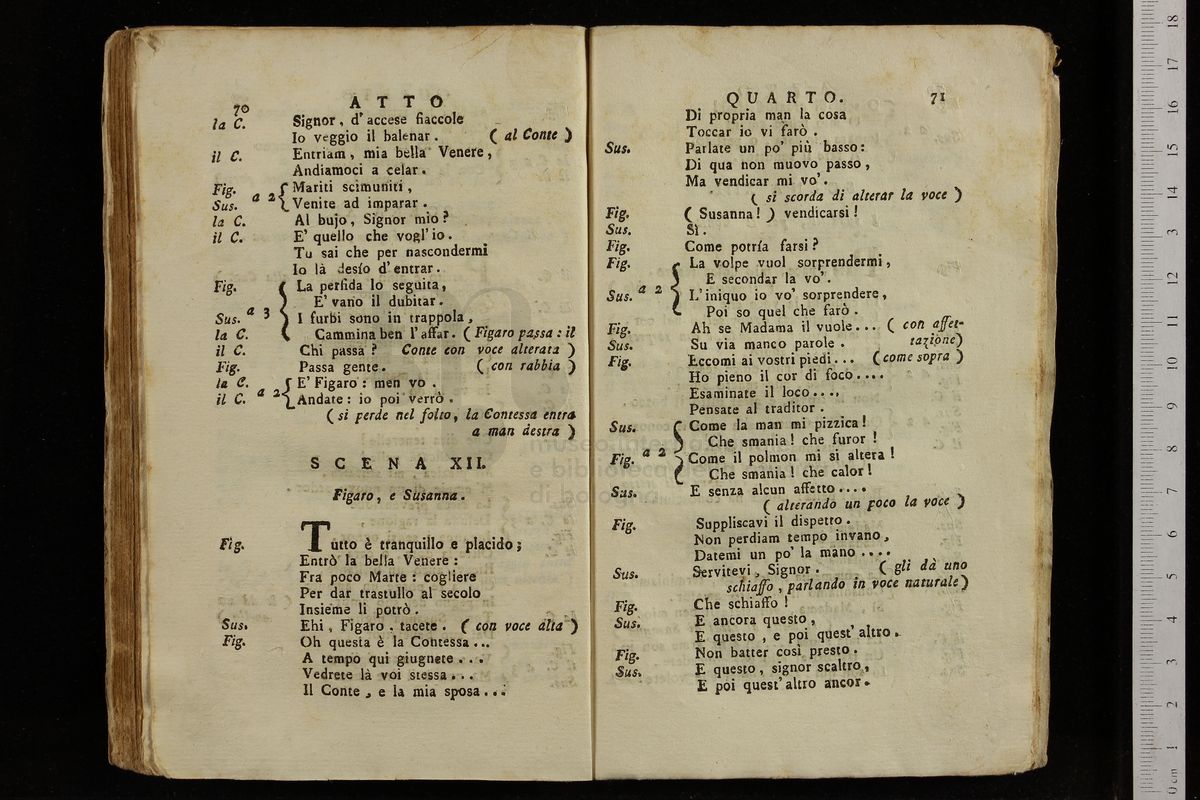 70
ATTO
la C. Signor, d'accese fiaccole
Io veggio il balenar. ( al Conte )
il C. Entriam, mia bella Venere,
Andiamoci a celar.
Fig. Mariti scimuniti,
Sus. a 2 Venite ad imparar.
la C. Al bujo, Signor mio?
il C. E' quello che vogl'io.
Tu sai che per nascondermi
Io là desío d'entrar.
Fig. La perfida lo seguita,
E' vano il dubitar.
Sus. a 3 I furbi sono in trappola,
la C. Cammina ben l'affar. ( Figaro passa: il
il C. Chi passa? Conte con voce alterata )
Fig. Passa gente. ( con rabbia )
la C. E' Figaro: men vo.
il C. a 2 Andate: io poi verrò.
( si perde nel folto, la Contessa entra
a man destra )
SCENA XII.
Figaro, e Susanna.
Fig. Tutto è tranquillo e placido;
Entrò la bella Venere:
Fra poco Marte: cogliere
Per dar trastullo al secolo
Insieme li potrò.
Sus. Ehi, Figaro. tacete. ( con voce alta )
Fig. Oh questa è la Contessa...
A tempo qui giugnete...
Vedrete là voi stessa...
Il Conte, e la mia sposa...
QUARTO.
71
Di propria man la cosa
Toccar io vi farò.
Sus. Parlate un po' più basso:
Di qua non muovo passo,
Ma vendicar mi vo'.
( si scorda di alterar la voce )
Fig. ( Susanna! ) vendicarsi!
Sus. Sì.
Fig. Come potría farsi?
Fig. La volpe vuol sorprendermi,
E secondar la vo'.
Sus. a 2 L'iniquo io vo' sorprendere,
Poi so quel che farò.
Fig. Ah se Madama il vuole... ( con affet-
Sus. Su via manco parole. tazione)
Fig. Eccomi ai vostri piedi... ( come sopra )
Ho pieno il cor di foco....
Esaminate il loco....
Pensate al traditor.
Sus. Come la man mi pizzica!
Che smania! che furor!
Fig. a 2 Come il polmon mi si altera!
Che smania! che calor!
Sus. E senza alcun affetto....
( alterando un poco la voce )
Fig. Suppliscavi il dispetto.
Non perdiam tempo invano,
Datemi un po' la mano....
Sus. Servitevi, Signor. ( gli dà uno
schiaffo, parlando in voce naturale )
Fig. Che schiaffo!
Sus. E ancora questo,
E questo, e poi quest'altro.
Fig. Non batter così presto.
Sus. E questo, signor scaltro,
E poi quest'altro ancor.